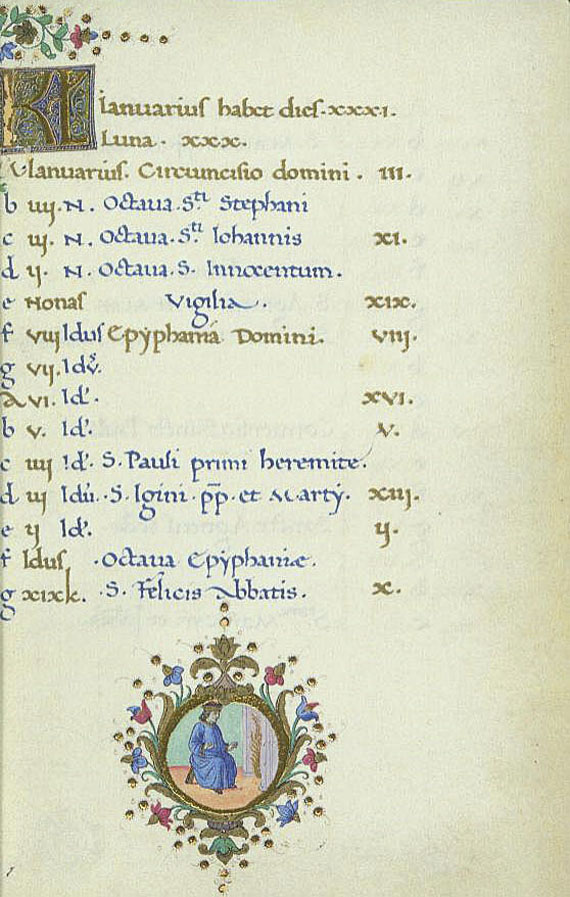 KL Ianuarius habet dies.xxxi.
Luna. xxx.
A Ianuarius. Circumcisio domini. iii.
b iiij. N. Octaua. Sti Stephani
c iij. N. Octaua. Sti Iohannis xi.
d ij. N. Octaua. S. Innocentum.
e Nonas Vigilia. xix.
f viij Idus Epyphania Domini. viij.
g vij. Idus.
A vi. Id'. xvi.
b v. Id'. v.
c iiij Id'. S. Pauli primi heremite.
d iij Idu. S. Igini. pp. et Marty. xiij.
e ij Id'. ij.
f Idus. Octaua Epyphaniæ.
g xix k. S. Felicis Abbatis. x.